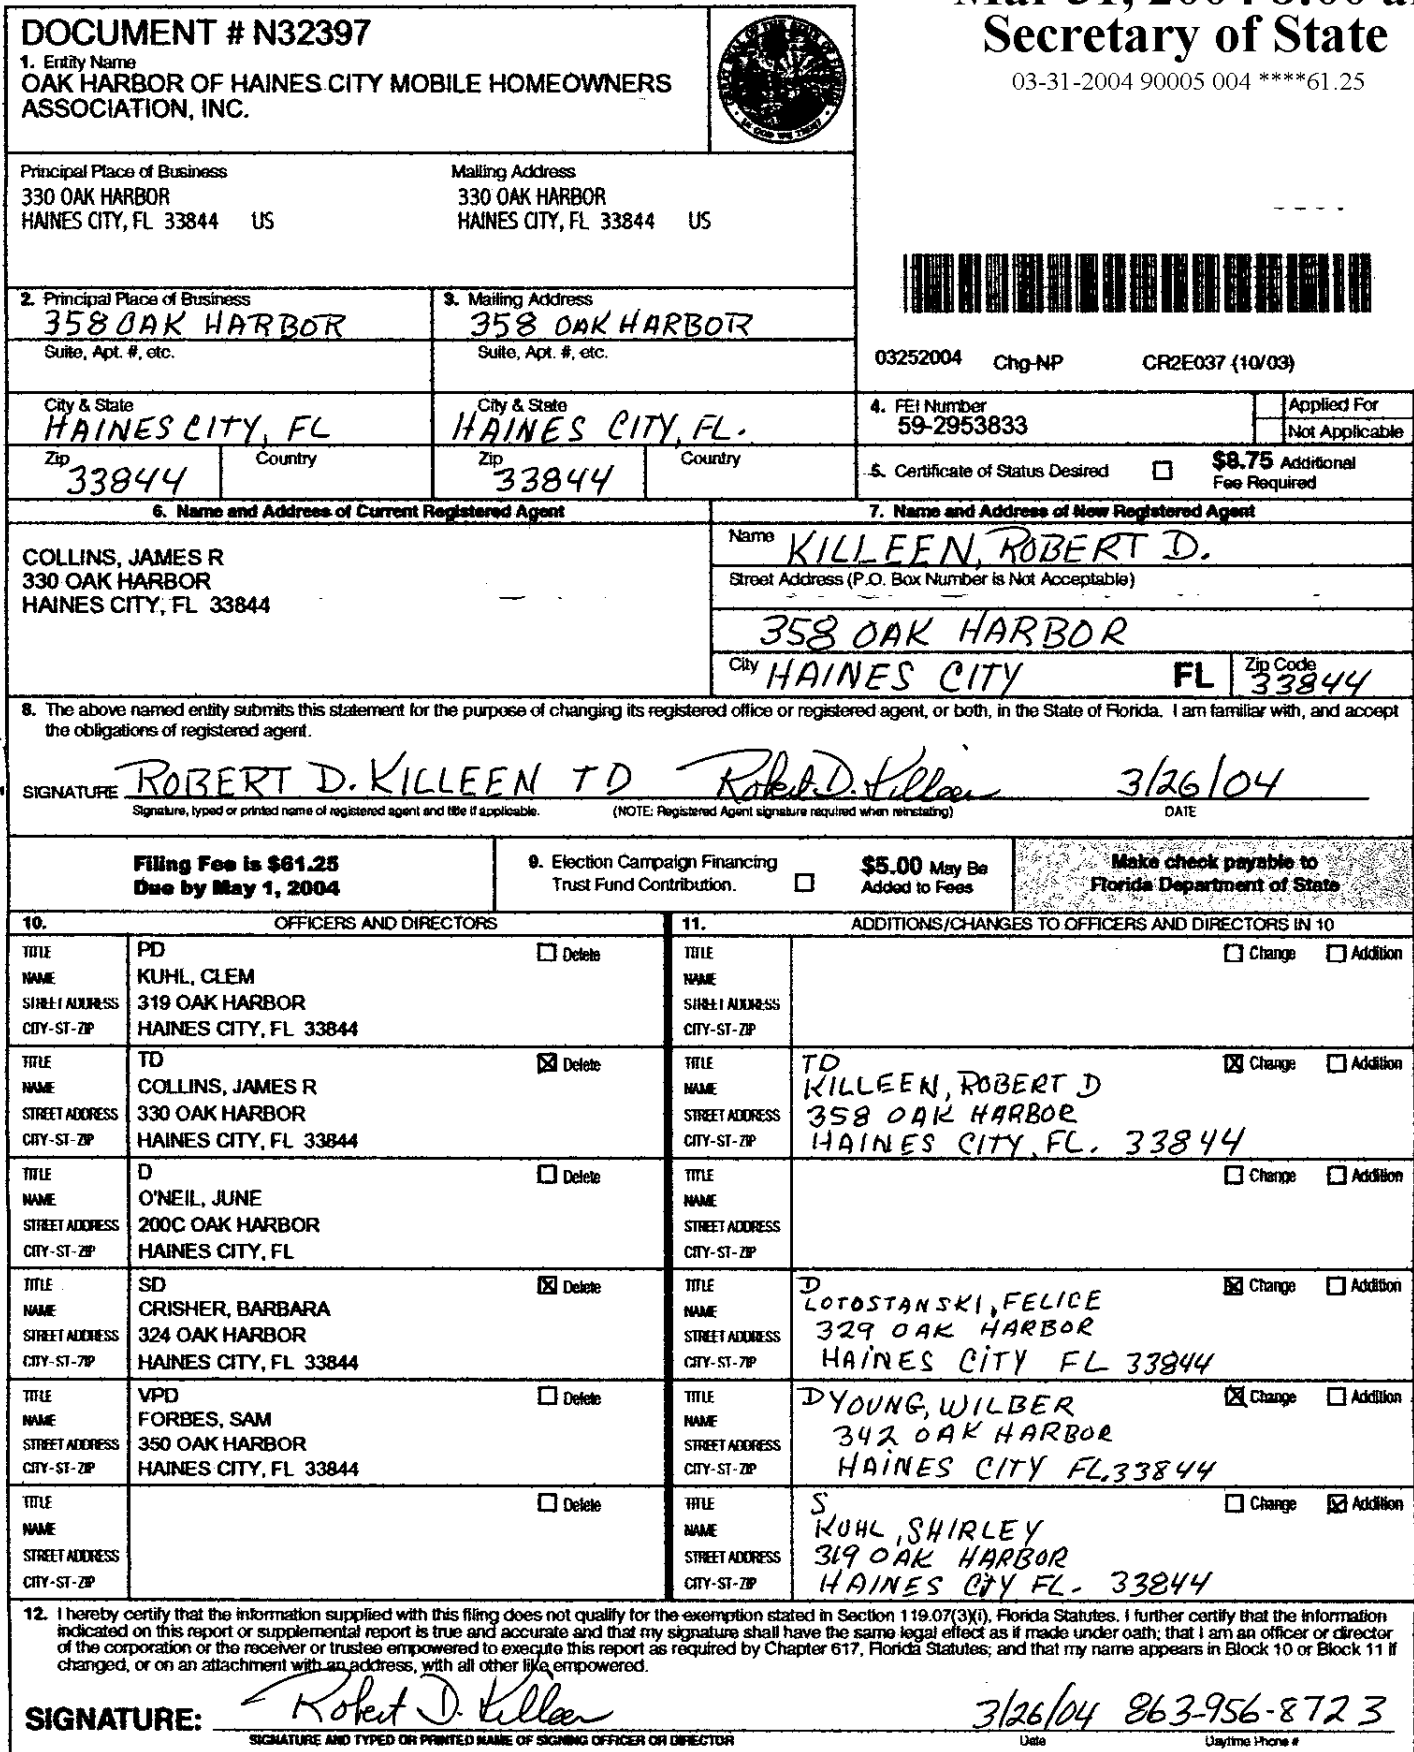 Secretary of State
03-31-2004 90005 004 ****61.25
DOCUMENT # N32397
1. Entity Name
OAK HARBOR OF HAINES CITY MOBILE HOMEOWNERS
ASSOCIATION, INC.
Principal Place of Business
330 OAK HARBOR
HAINES CITY, FL 33844 US
Mailing Address
330 OAK HARBOR
HAINES CITY, FL 33844 US
2. Principal Place of Business
358 OAK HARBOR
Suite, Apt. #, etc.
City & State
HAINES CITY, FL
Zip 33844 Country
3. Mailing Address
358 OAK HARBOR
Suite, Apt. #, etc.
City & State
HAINES CITY, FL.
Zip 33844 Country
03252004 Chg-NP CR2E037 (10/03)
4. FEI Number
59-2953833
Applied For
Not Applicable
5. Certificate of Status Desired
$8.75 Additional
Fee Required
6. Name and Address of Current Registered Agent
COLLINS, JAMES R
330 OAK HARBOR
HAINES CITY, FL 33844
7. Name and Address of New Registered Agent
Name KILLEEN, ROBERT D.
Street Address (P.O. Box Number is Not Acceptable)
358 OAK HARBOR
City HAINES CITY FL Zip Code 33844
8. The above named entity submits this statement for the purpose of changing its registered office or registered agent, or both, in the State of Florida. I am familiar with, and accept
the obligations of registered agent.
SIGNATURE ROBERT D. KILLEEN TD Robert D. Killeen 3/26/04
Signature, typed or printed name of registered agent and title if applicable. (NOTE: Registered Agent signature required when reinstating) DATE
Filing Fee is $61.25
Due by May 1, 2004
9. Election Campaign Financing
Trust Fund Contribution.
$5.00 May Be
Added to Fees
Make check payable to
Florida Department of State
10. OFFICERS AND DIRECTORS
TITLE PD Delete
NAME KUHL, CLEM
STREET ADDRESS 319 OAK HARBOR
CITY-ST-ZIP HAINES CITY, FL 33844
TITLE TD Delete
NAME COLLINS, JAMES R
STREET ADDRESS 330 OAK HARBOR
CITY-ST-ZIP HAINES CITY, FL 33844
TITLE D Delete
NAME O'NEIL, JUNE
STREET ADDRESS 200C OAK HARBOR
CITY-ST-ZIP HAINES CITY, FL
TITLE SD Delete
NAME CRISHER, BARBARA
STREET ADDRESS 324 OAK HARBOR
CITY-ST-ZIP HAINES CITY, FL 33844
TITLE VPD Delete
NAME FORBES, SAM
STREET ADDRESS 350 OAK HARBOR
CITY-ST-ZIP HAINES CITY, FL 33844
TITLE Delete
NAME
STREET ADDRESS
CITY-ST-ZIP
11. ADDITIONS/CHANGES TO OFFICERS AND DIRECTORS IN 10
TITLE Change Addition
NAME
STREET ADDRESS
CITY-ST-ZIP
TITLE TD Change Addition
NAME KILLEEN, ROBERT D
STREET ADDRESS 358 OAK HARBOR
CITY-ST-ZIP HAINES CITY, FL. 33844
TITLE Change Addition
NAME
STREET ADDRESS
CITY-ST-ZIP
TITLE D Change Addition
NAME LOTOSTANSKI, FELICE
STREET ADDRESS 329 OAK HARBOR
CITY-ST-ZIP HAINES CITY FL 33844
TITLE D YOUNG, WILBER Change Addition
NAME
STREET ADDRESS 342 OAK HARBOR
CITY-ST-ZIP HAINES CITY FL. 33844
TITLE S Change Addition
NAME KUHL, SHIRLEY
STREET ADDRESS 319 OAK HARBOR
CITY-ST-ZIP HAINES CITY FL. 33844
12. I hereby certify that the information supplied with this filing does not qualify for the exemption stated in Section 119.07(3)(i), Florida Statutes. I further certify that the information
indicated on this report or supplemental report is true and accurate and that my signature shall have the same legal effect as if made under oath; that I am an officer or director
of the corporation or the receiver or trustee empowered to execute this report as required by Chapter 617, Florida Statutes; and that my name appears in Block 10 or Block 11 if
changed, or on an attachment with an address, with all other like empowered.
SIGNATURE: Robert D. Killeen 3/26/04 863-956-8723
SIGNATURE AND TYPED OR PRINTED NAME OF SIGNING OFFICER OR DIRECTOR Date Daytime Phone #